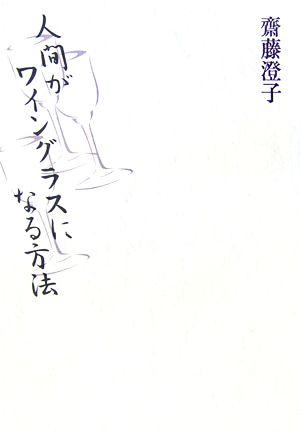 齋藤澄子
人間が
ワイングラスに
なる方法